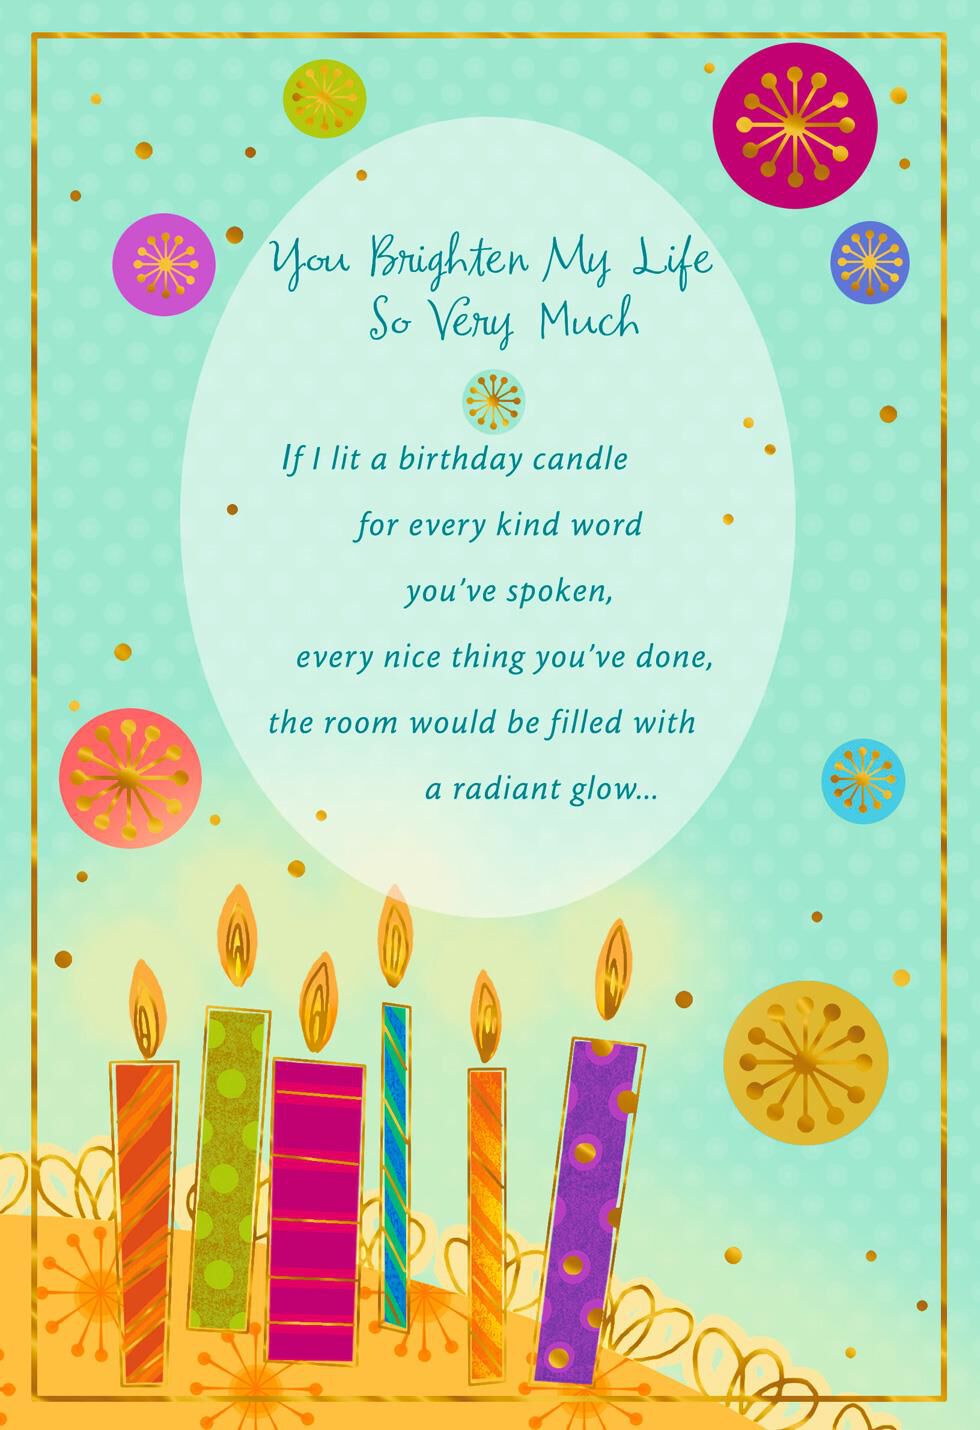 You Brighten My Life
So Very Much
If I lit a birthday candle
for every kind word
you've spoken,
every nice thing you've done,
the room would be filled with
a radiant glow...